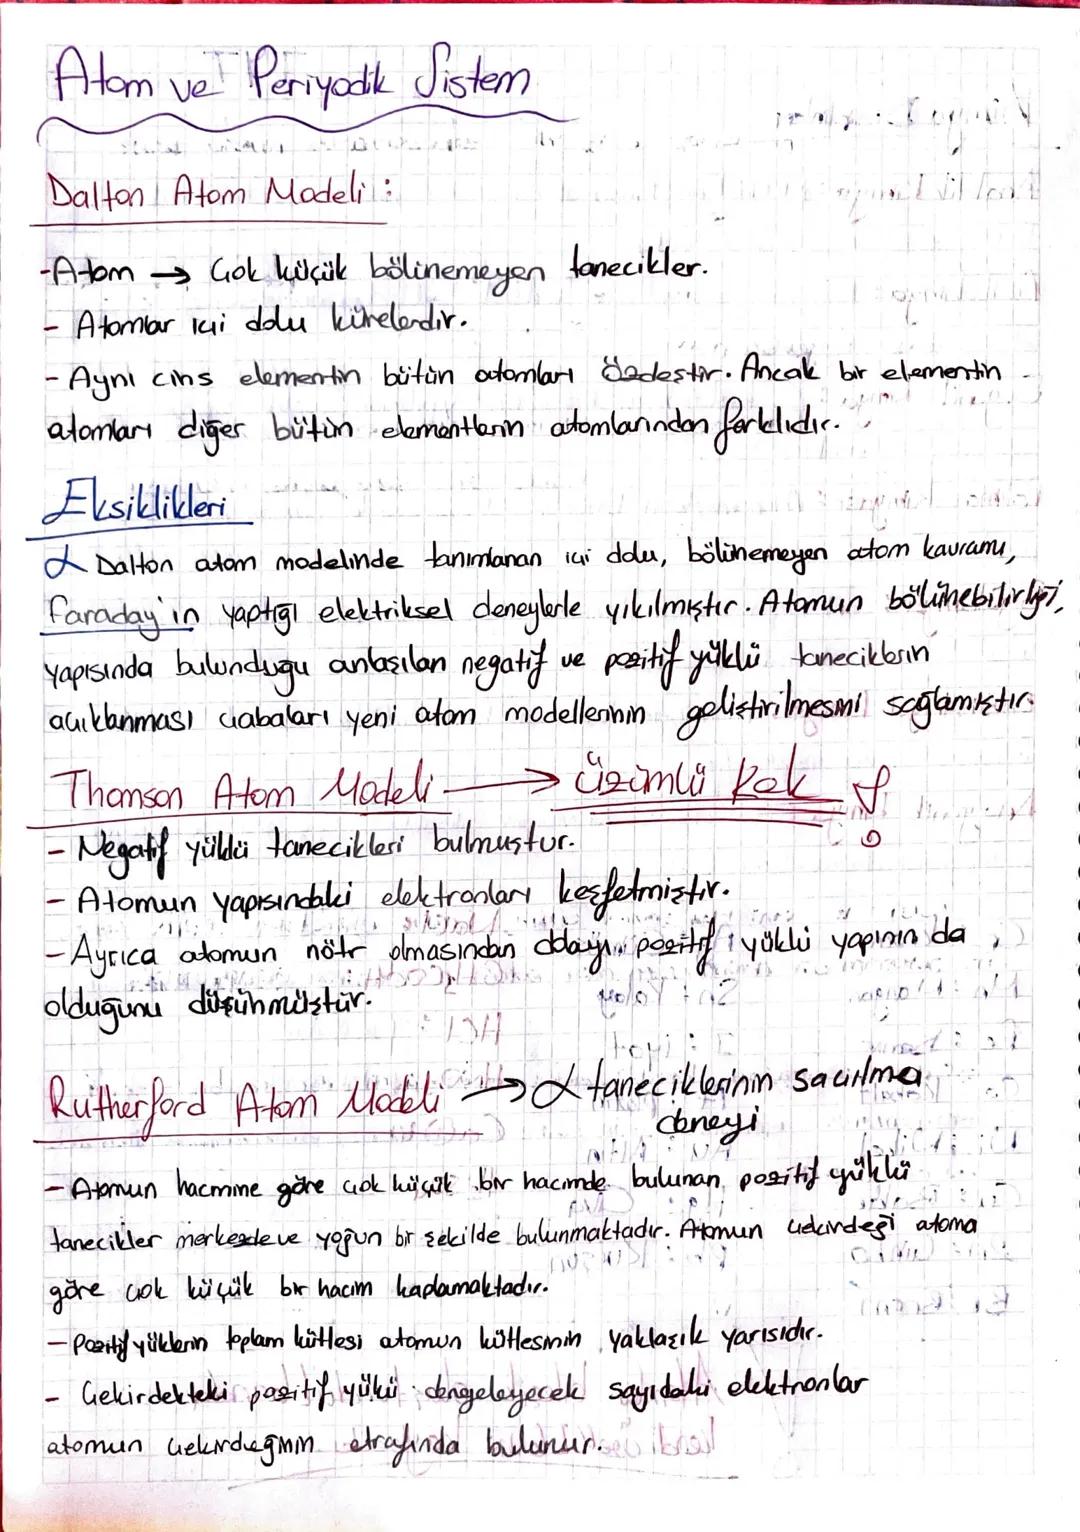 Atom ve Periyodik Sistem
Dalton Atom Modeli :
-Atom → Çok küçük bölünemeyen tanecikler.
- Atomlar içi dolu kürelerdir.
- Aynı cins elementin bütün atomları özdeştir. Ancak bir elementin
atomları diğer bütün elementlerin atomlarından farklıdır.
Eksiklikleri
α Dalton atom modelinde tanımlanan içi dolu, bölünemeyen atom kavramı,
Faraday'ın yaptığı elektriksel deneylerle yıkılmıştır. Atomun bölünebilirliği,
yapısında bulunduğu anlaşılan negatif ve pozitif yüklü taneciklerin
açıklanması çabaları yeni atom modellerinin geliştirilmesini sağlamıştır.
Thomson Atom Modeli → Üzümlü Kek
- Negatif yüklü tanecikleri bulmuştur.
- Atomun yapısındaki elektronları keşfetmiştir.
- Ayrıca atomun nötr olmasından dolayı pozitif yüklü yapının da
olduğunu düşünmüştür.
Rutherford Atom Modeli → α taneciklerinin saçılma
deneyi
- Atomun hacmine göre çok küçük bir hacimde bulunan pozitif yüklü
tanecikler merkezde ve yoğun bir şekilde bulunmaktadır. Atomun çekirdeği atoma
göre çok küçük bir hacim kaplamaktadır.
- Pozitif yüklerin toplam kütlesi atomun kütlesinin yaklaşık yarısıdır.
- Çekirdekteki pozitif yükü dengeleyecek sayıdaki elektronlar
atomun çekirdeğinin etrafında bulunur.